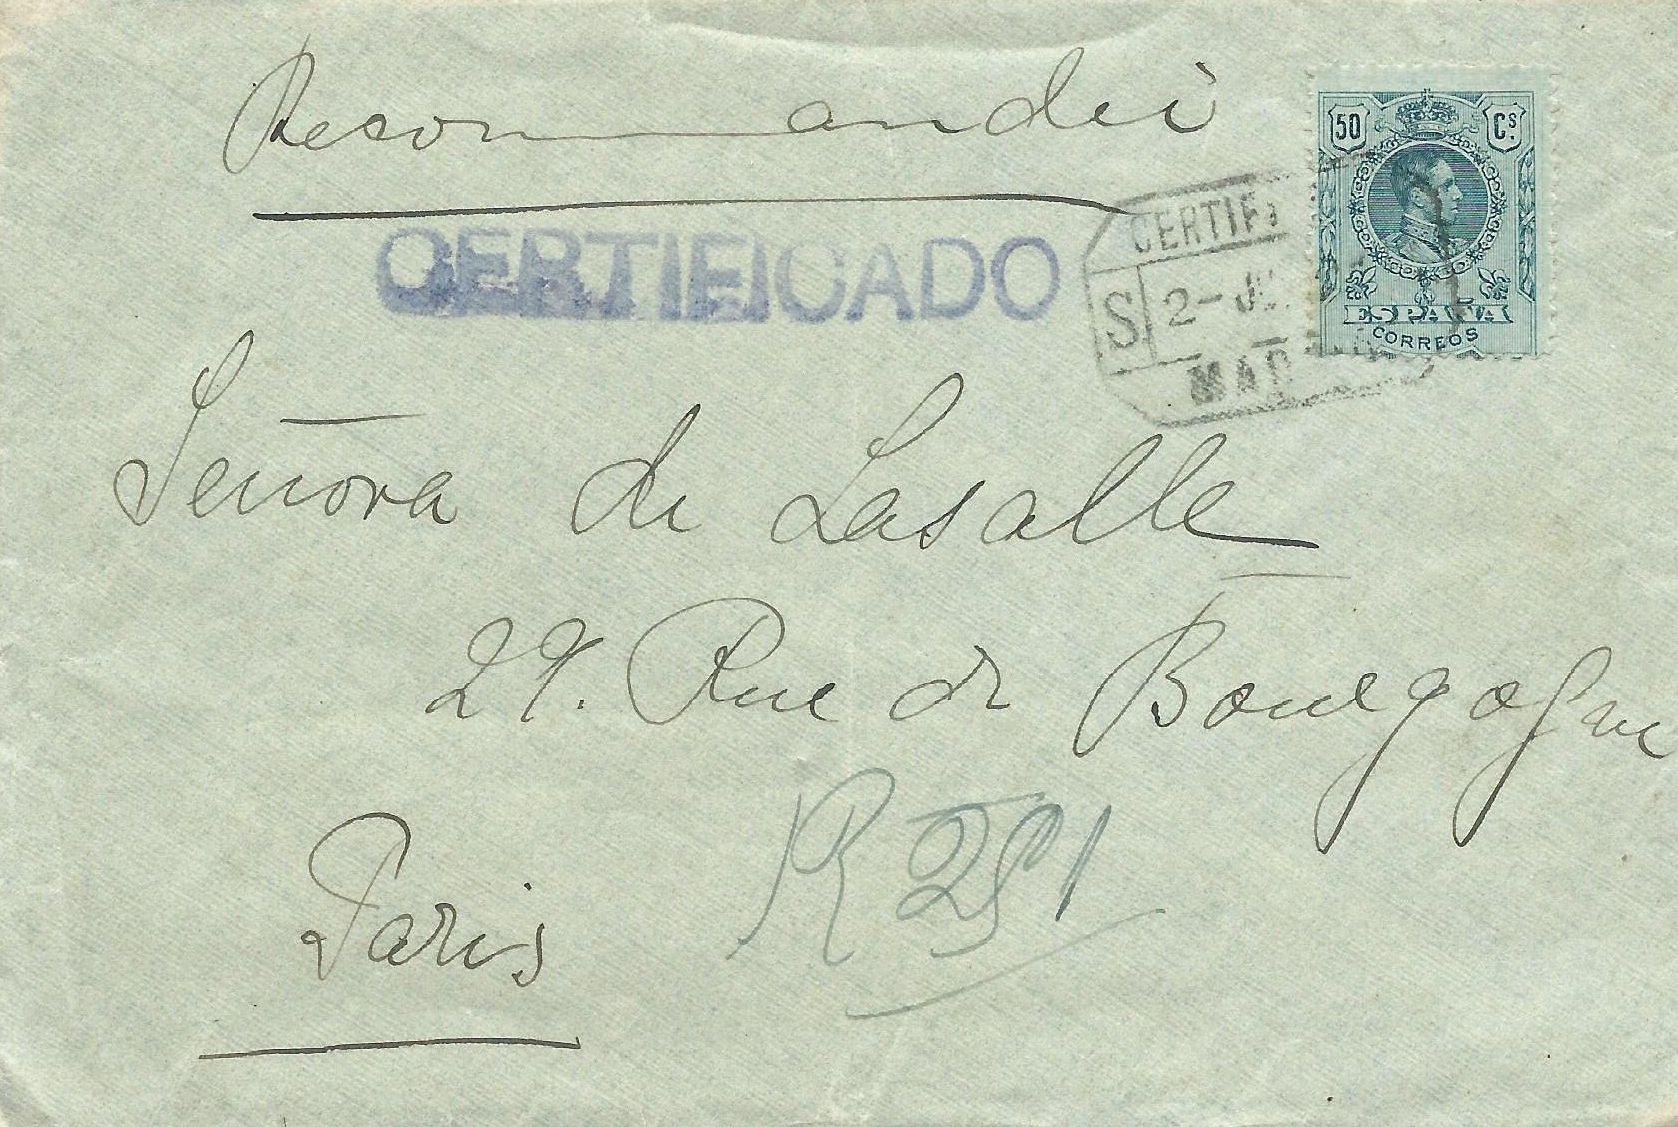 Recommandée
50 Cs.
ESPAÑA
CORREOS
CERTIFICADO
CERTIF
S 2-JU
MAD
Señora de Lasalle
29. Rue de Bourgogne
Paris
R 251